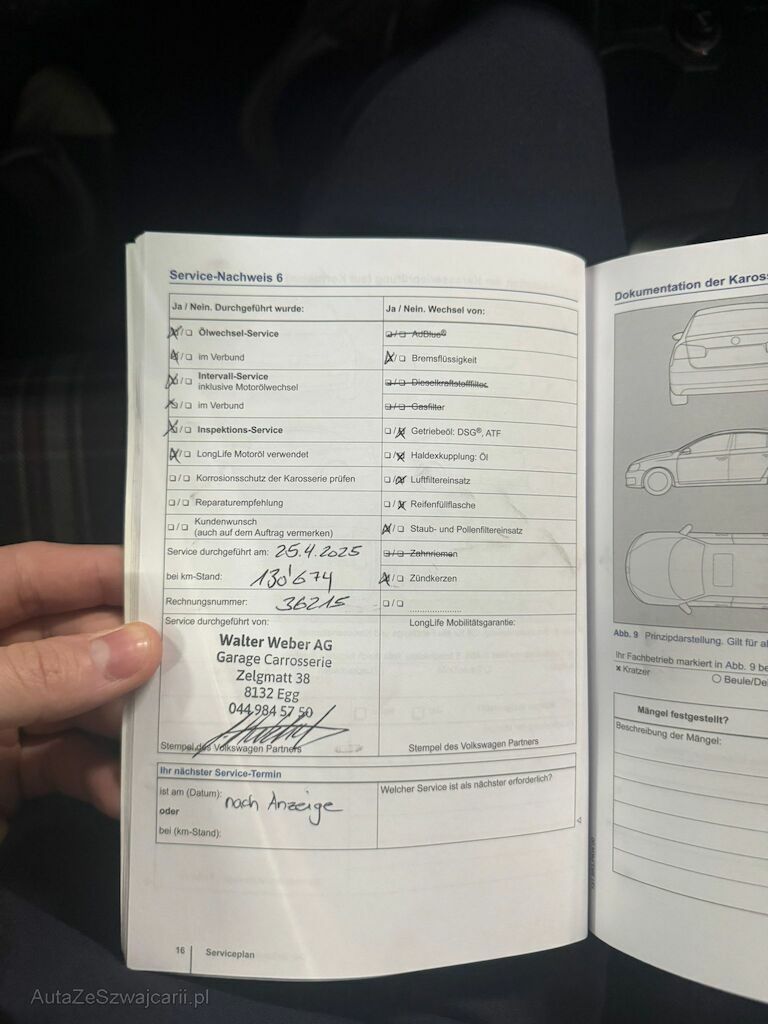 Service-Nachweis 6
Ja / Nein. Durchgeführt wurde:
☒/☐ Ölwechsel-Service
☒/☐ im Verbund
☒/☐ Intervall-Service
inklusive Motorölwechsel
☒/☐ im Verbund
☒/☐ Inspektions-Service
☒/☐ LongLife Motoröl verwendet
☐/☐ Korrosionsschutz der Karosserie prüfen
☐/☐ Reparaturempfehlung
☐/☐ Kundenwunsch
(auch auf dem Auftrag vermerken)
Service durchgeführt am: 25.4.2025
bei km-Stand: 130'674
Rechnungsnummer: 36215
Service durchgeführt von:
Walter Weber AG
Garage Carrosserie
Zelgmatt 38
8132 Egg
044 984 57 50
Stempel des Volkswagen Partners
Ja / Nein. Wechsel von:
☐/☐ AdBlue®
☒/☐ Bremsflüssigkeit
☐/☐ Dieselkraftstofffilter
☐/☐ Gasfilter
☐/☒ Getriebeöl: DSG®, ATF
☐/☒ Haldexkupplung: Öl
☐/☒ Luftfiltereinsatz
☐/☒ Reifenfüllflasche
☒/☐ Staub- und Pollenfiltereinsatz
☐/☐ Zahnriemen
☒/☐ Zündkerzen
☐/☐ ....................
LongLife Mobilitätsgarantie:
Stempel des Volkswagen Partners
Ihr nächster Service-Termin
ist am (Datum): nach Anzeige
oder
bei (km-Stand):
Welcher Service ist als nächster erforderlich?
16 Serviceplan
Dokumentation der Kaross
Abb. 9 Prinzipdarstellung. Gilt für al
Ihr Fachbetrieb markiert in Abb. 9 be
x Kratzer
○ Beule/De
Mängel festgestellt?
Beschreibung der Mängel:
AutaZeSzwajcarii.pl